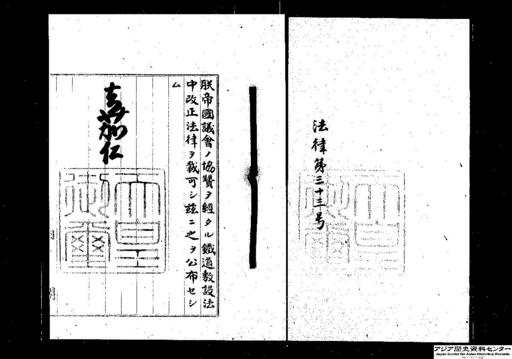 法律第三十三号
朕帝國議會ノ協贊ヲ經タル鐵道敷設法
中改正法律ヲ裁可シ玆ニ之ヲ公布セシ
ム
嘉仁
天皇
御璽
アジア歴史資料センター
Japan Center for Asian Historical Records